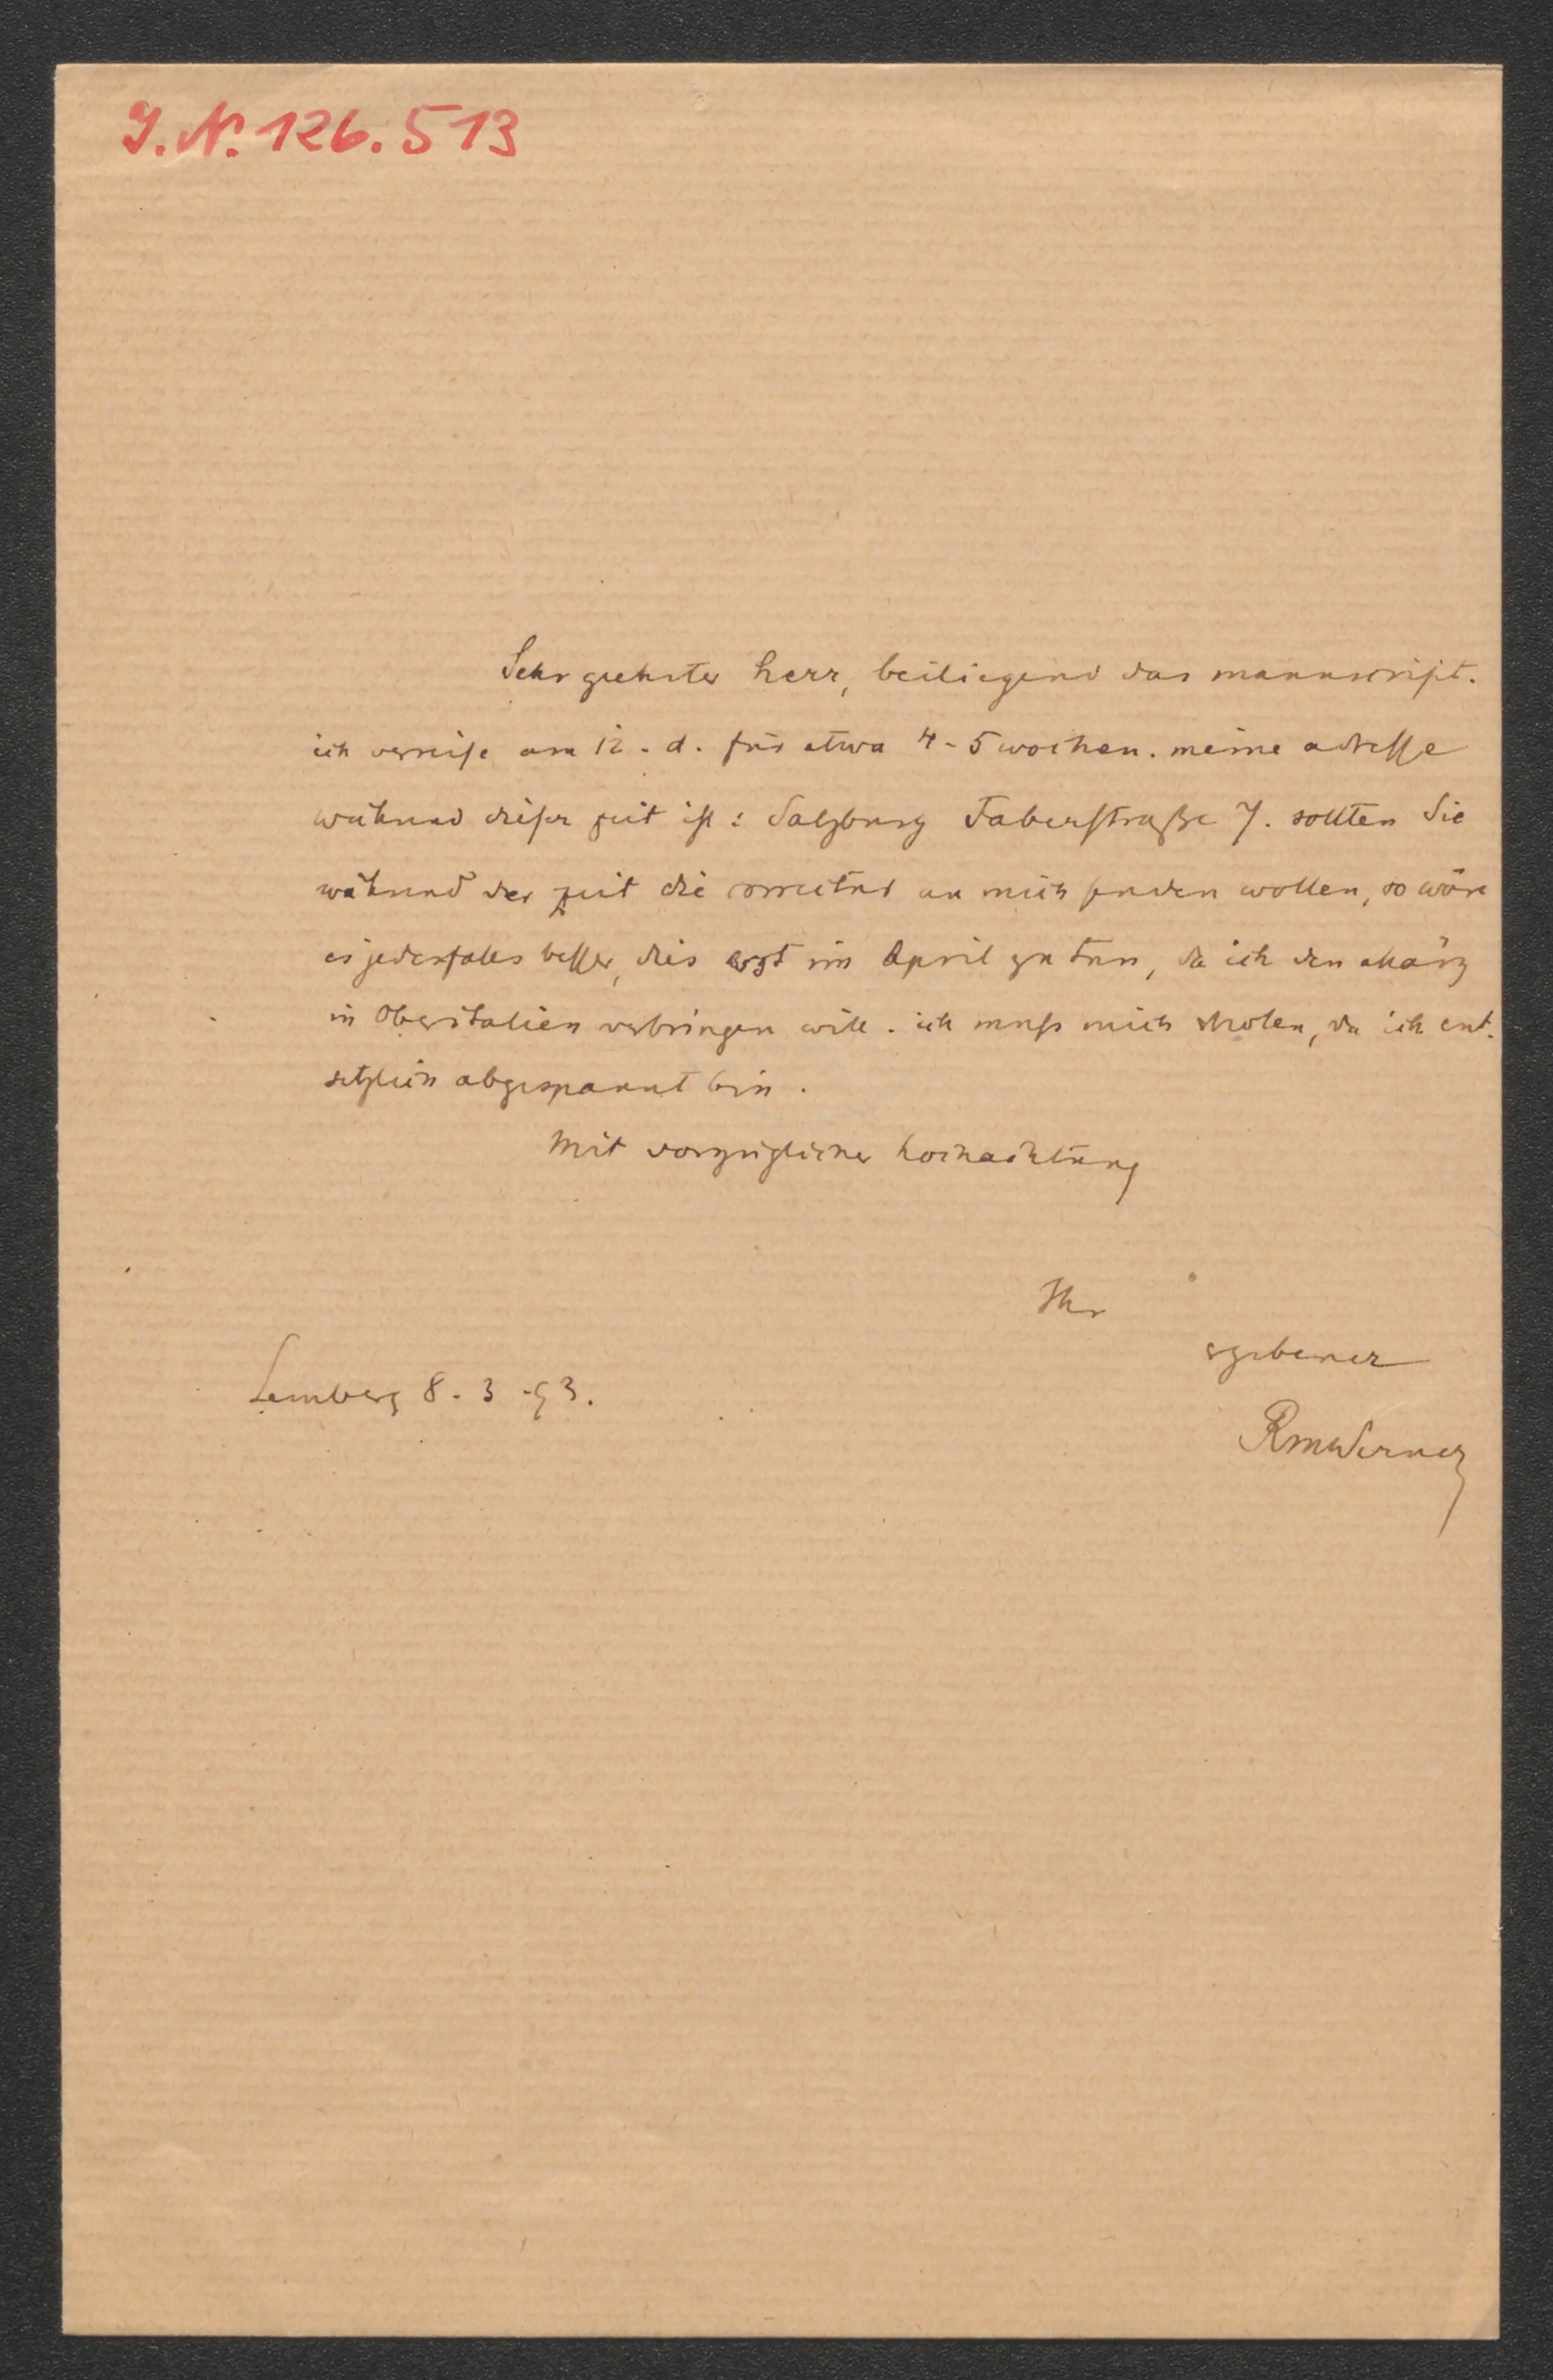 J. N. 126.513
Sehr geehrter herr, beiliegend das manuscript.
ich verreise am 12. d. für etwa 4-5 wochen. meine adresse
während dieser zeit ist: Salzburg Faberstraße 7. sollten Sie
während der zeit die correctur an mich senden wollen, so wäre
es jedesfalles besser, dies erst im April zu tun, da ich den März
in Oberitalien verbringen will. ich muss mich erholen, da ich ent-
setzlich abgespannt bin.
Mit vorzüglicher hochachtung
Ihr
ergebener
Lemberg 8. 3. 93.
RMWerner